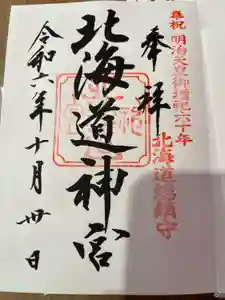 皇祝 明治天皇御増祀六十年
北海道総鎮守
奉拝
北海道神宮
令和六年十月卅日